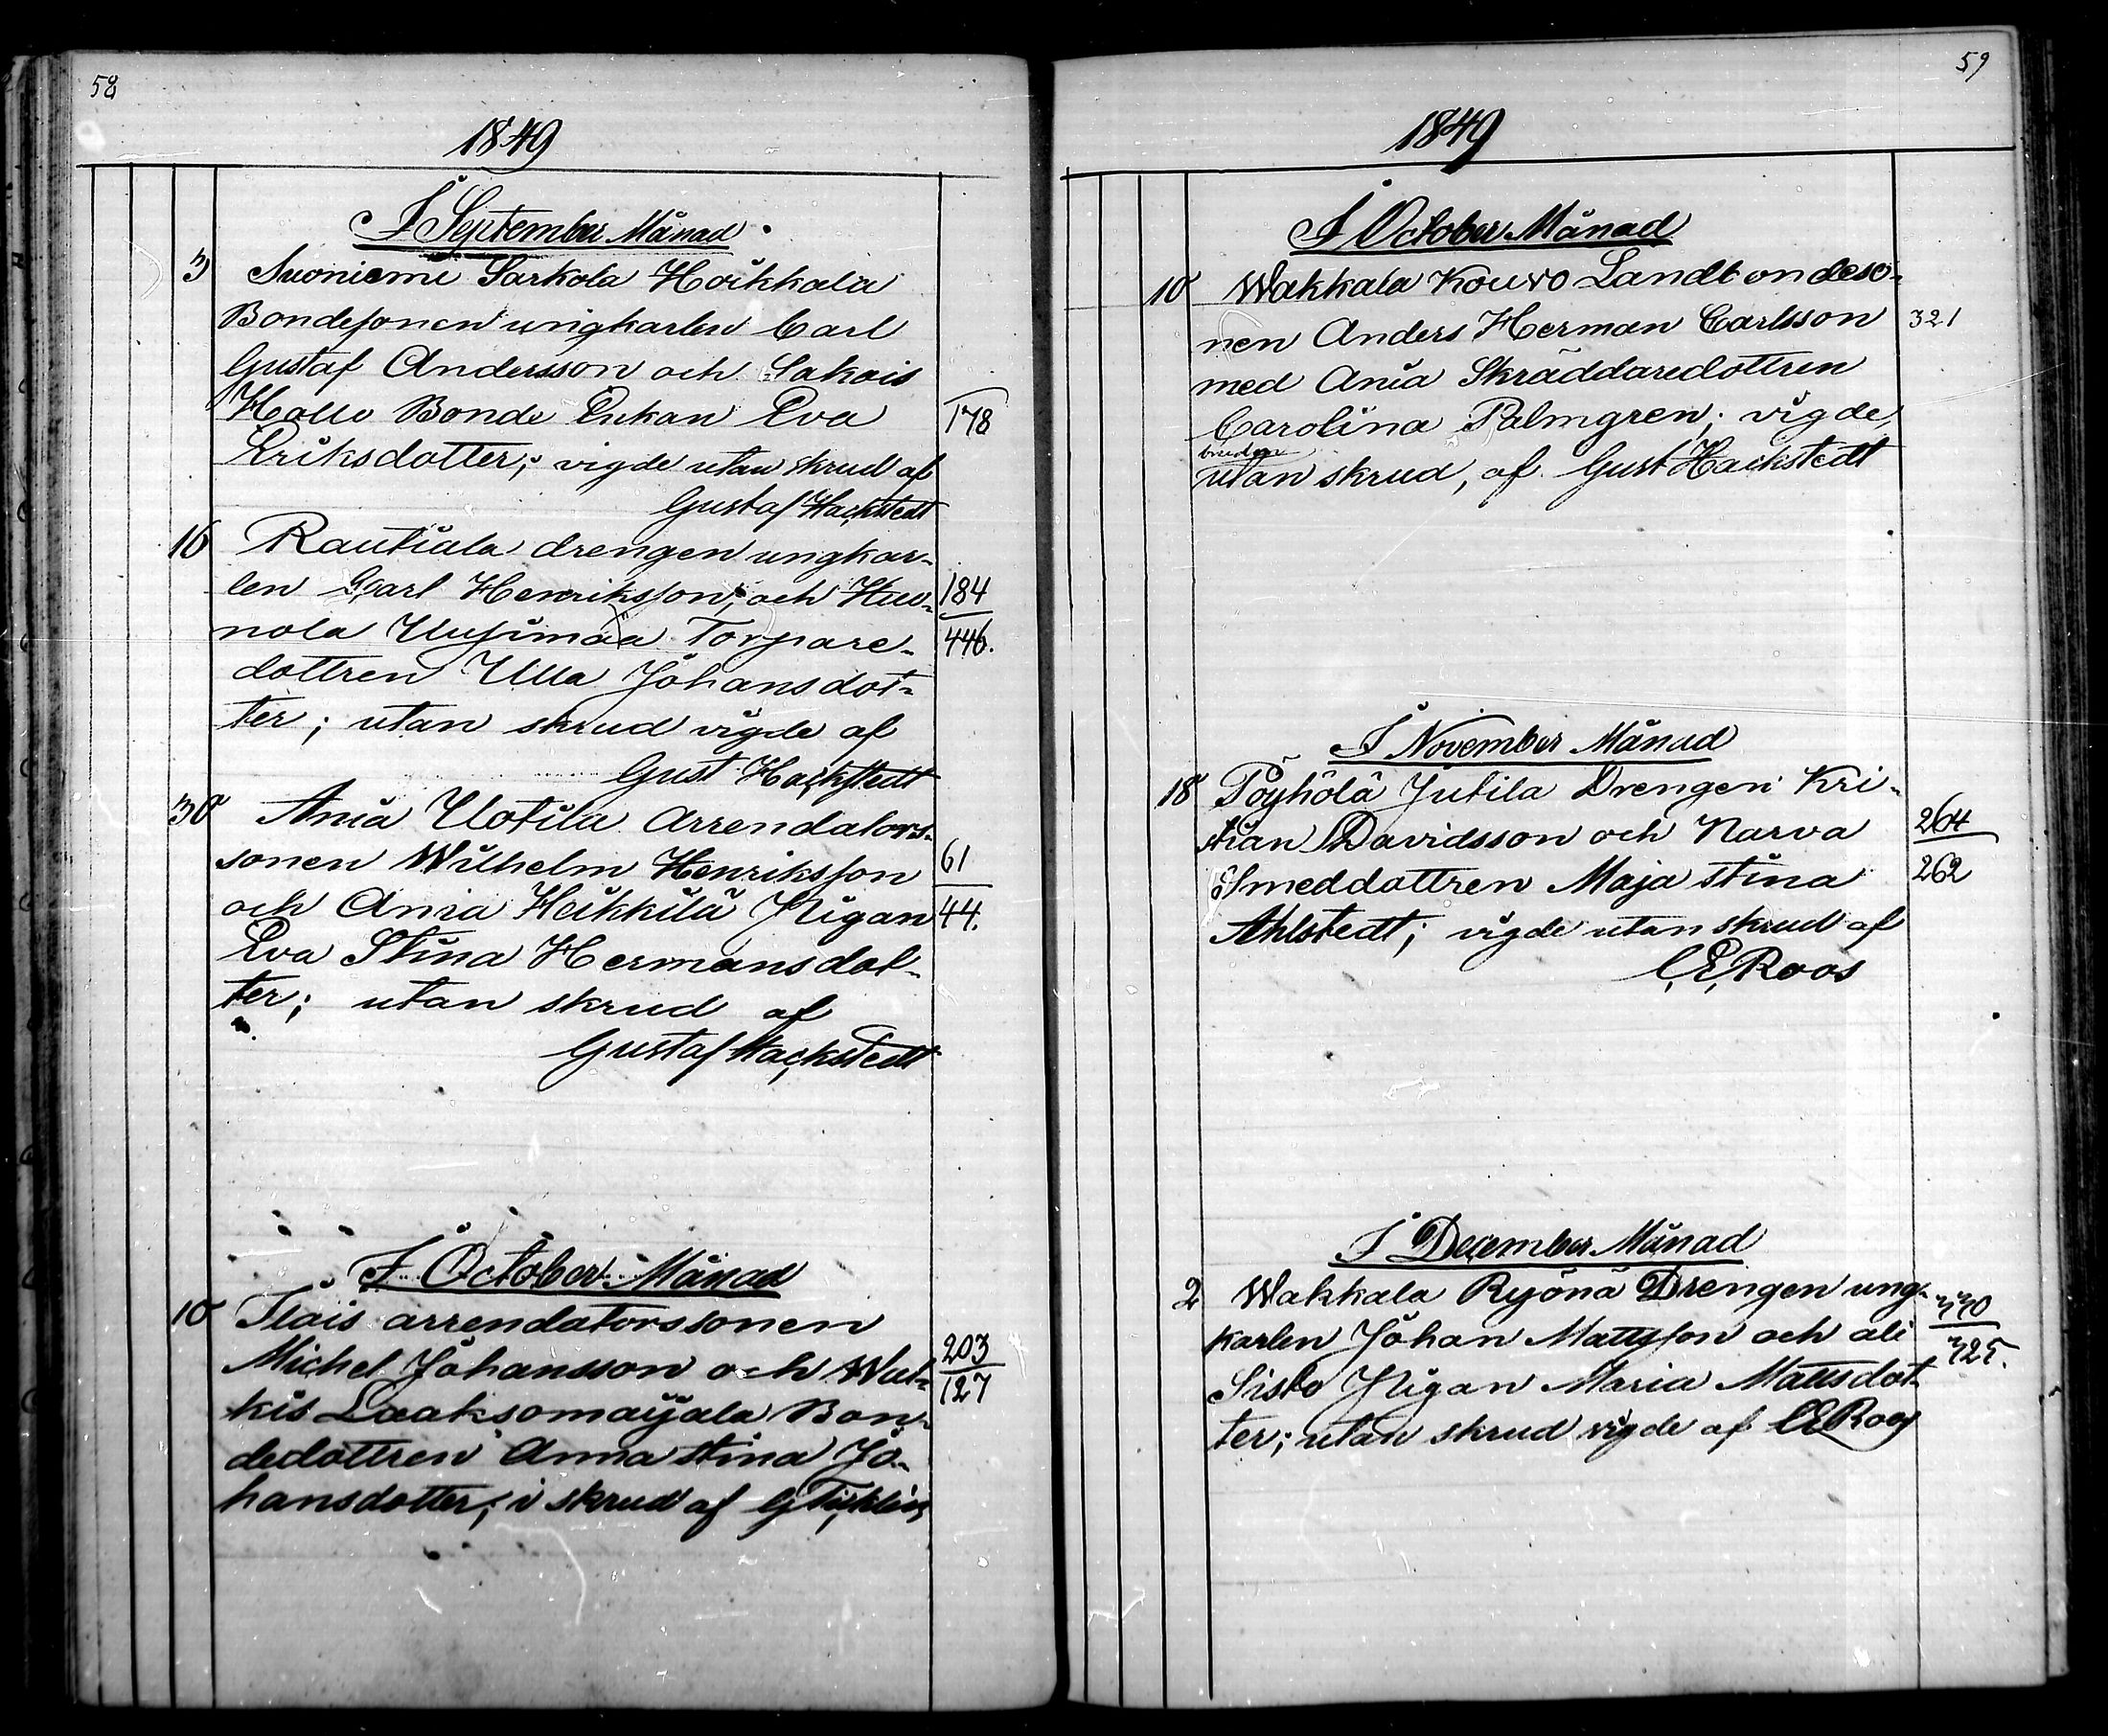 58
1849
I September Månad
3 Suoniemi Sarkola Hoikkala
Bondesonen ungkarlen Carl
Gustaf Andersson och Sakois
Hollo Bonde Enkan Eva 178
Eriksdotter; vigde utan skrud af
Gustaf Hackstedt
16 Rautiala drengen ungkar-
len Carl Henriksson, och Huu- 184
nola Uusimaa Torpare- 446.
dottren Ulla Johansdot-
ter; utan skrud vigde af
Gust Hackstedt
30 Ania Uotila Arrendators-
sonen Wilhelm Henriksson 61
och Ania Heikkilä Pigan 44.
Eva Stina Hermansdot-
ter; utan skrud af
Gustaf Hackstedt
I October Månad
10 Ilais arrendatorssonen
Michel Johansson och Wul- 203
kis Laaksomaijala Bon- 127
dedottren Anna Stina Jo-
hansdotter; i skrud af
59
1849
I October Månad
10 Wakkala Kouvo Landtbondeso-
nen Anders Herman Carlsson 321
med Ania Skräddaredottren
Carolina Palmgren; vigde,
bruden
utan skrud, af Gust Hackstedt
I November Månad
18 Pöyhölä Jutila Drengen Kri-
stian Davidsson och Narva 264
Smeddottren Maja Stina 262
Ahlstedt; vigde utan skrud af
C,E,Roos
I December Månad
2 Wakkala Ryönä Drengen ung- 330
karlen Johan Mattsson och ali 325.
Sisto Pigan Maria Mattsdot-
ter; utan skrud vigde af CERoos